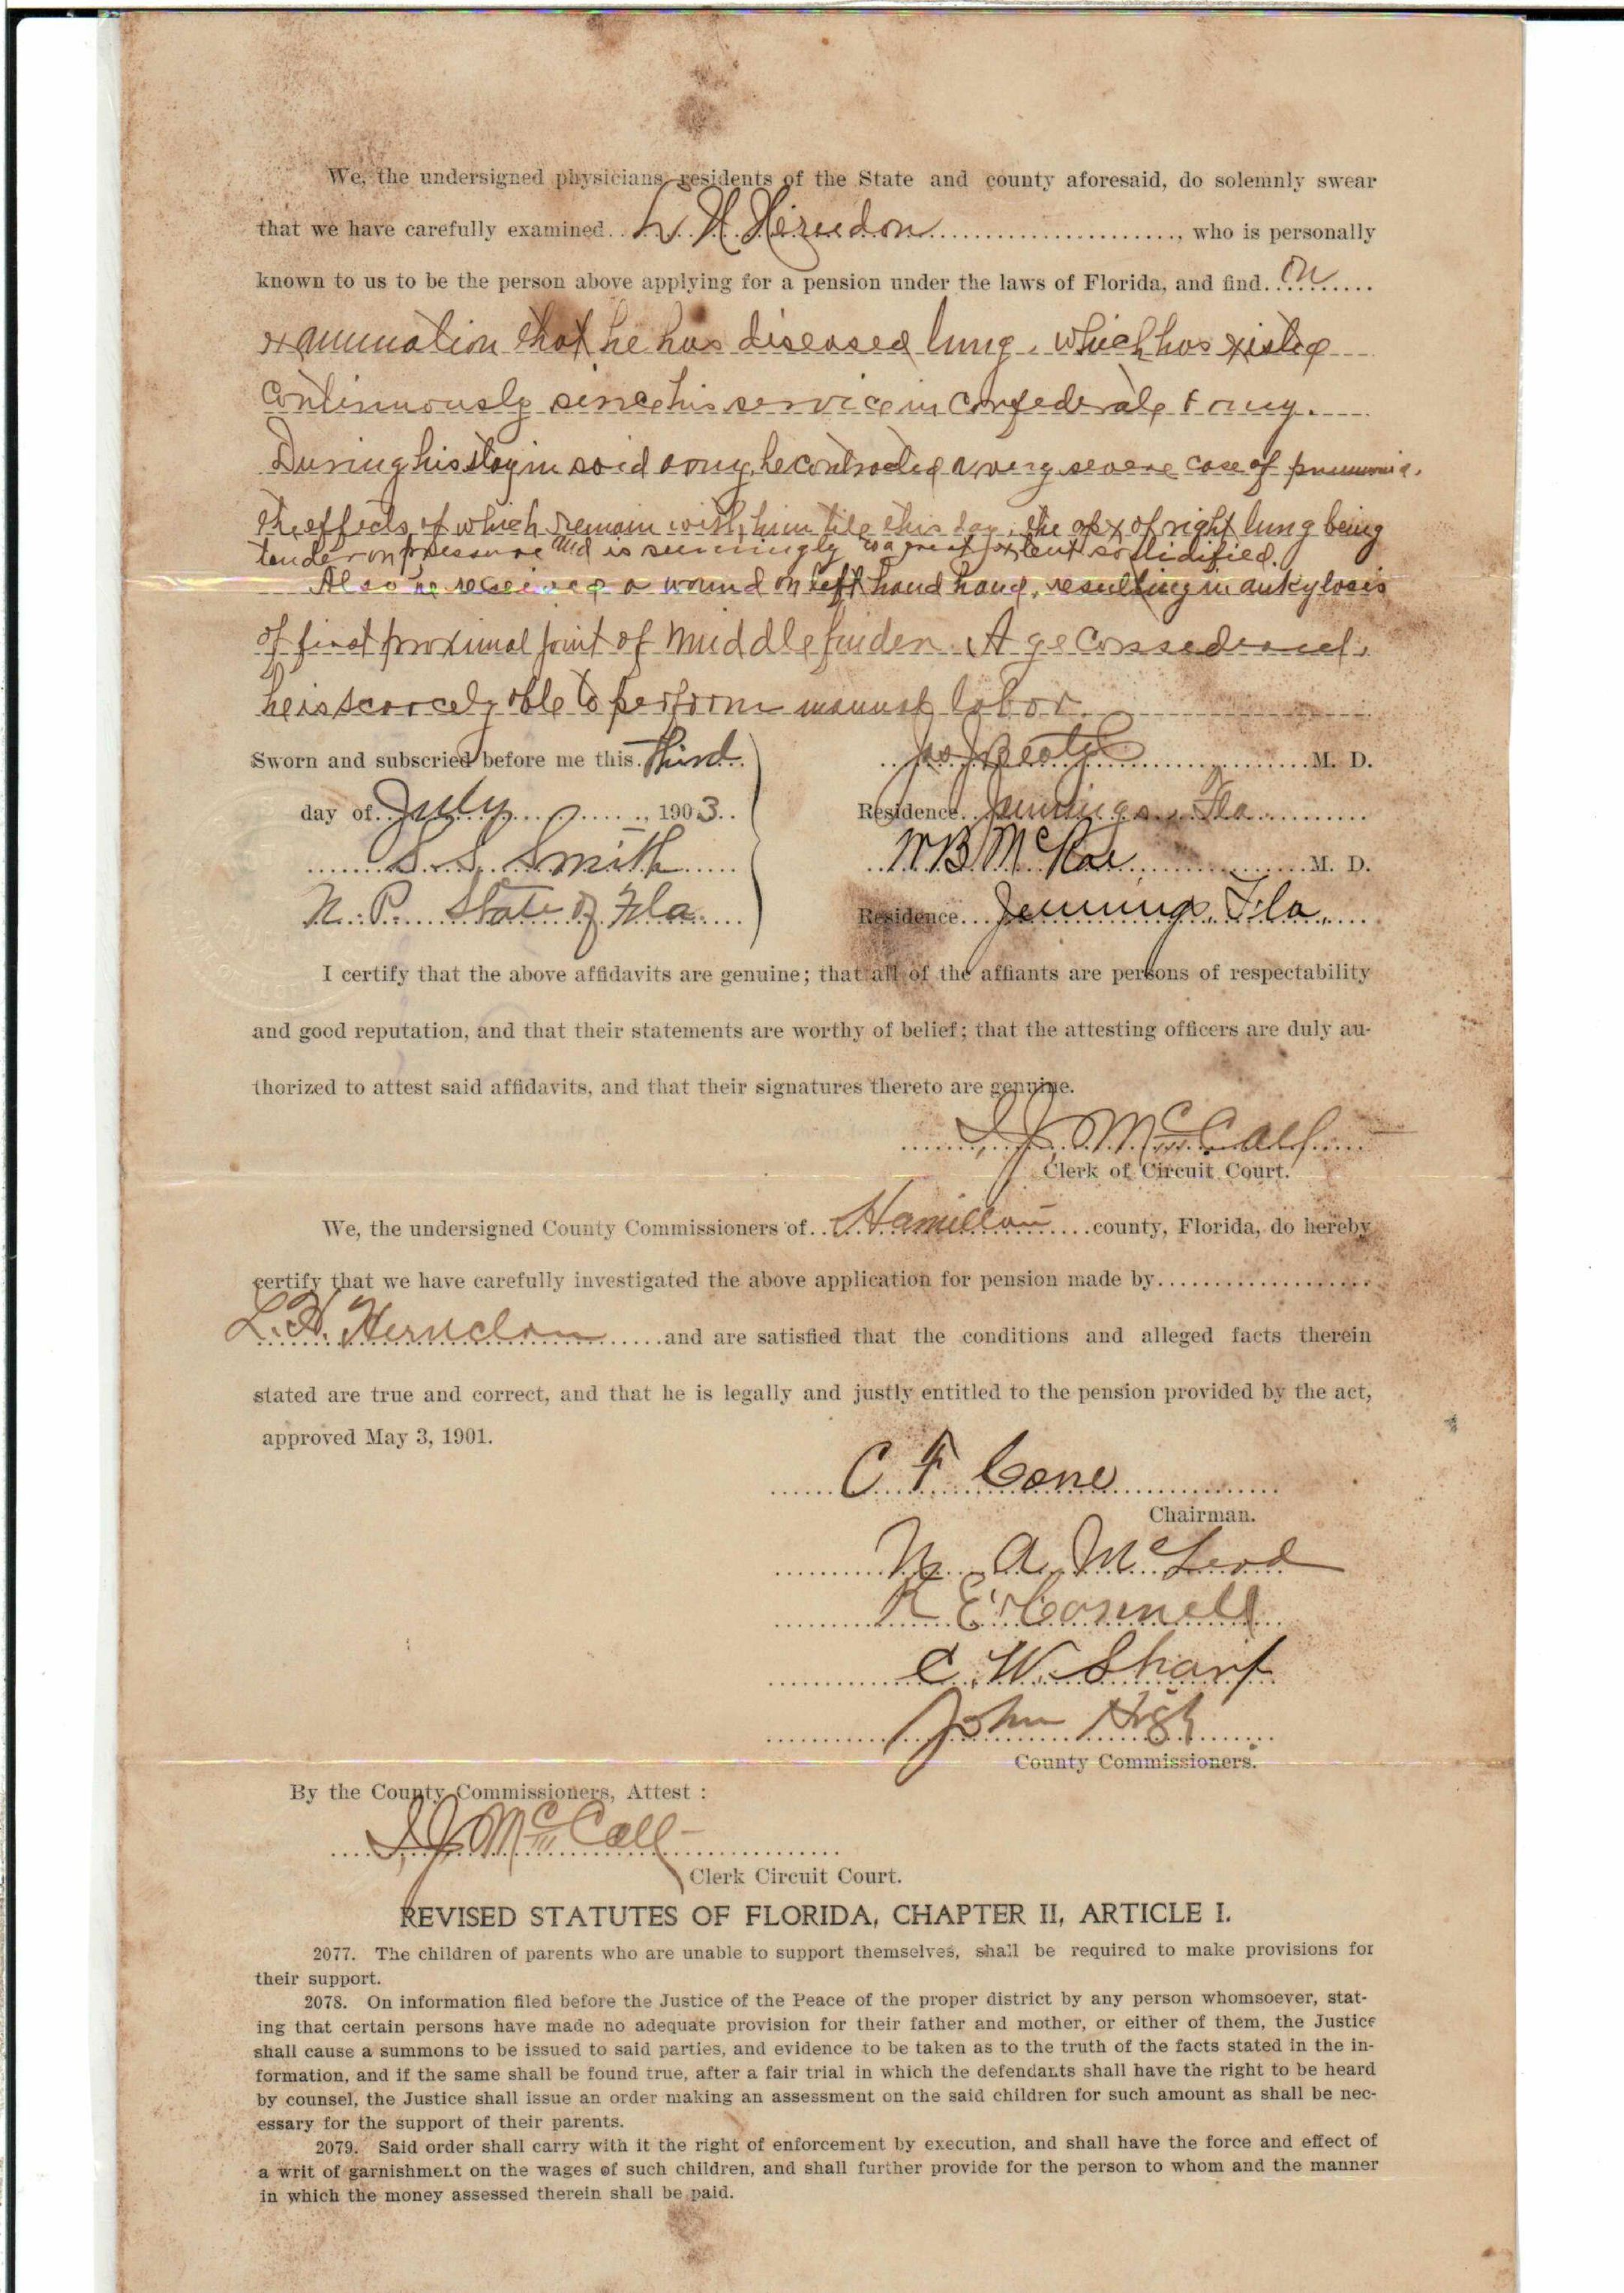 We, the undersigned physicians residents of the State and county aforesaid, do solemnly swear
that we have carefully examined L. H. Herndon, who is personally
known to us to be the person above applying for a pension under the laws of Florida, and find on
examination that he has diseased lung, which has existed
continuously since his service in Confederate Army.
During his stay in said army he contracted a very severe case of pneumonia,
the effects of which remain with him till this day, the apex of right lung being
tender on pressure and is seemingly to a great extent solidified.
Also he received a wound on left hand hand, resulting in ankylosis
of first proximal joint of middle finden. Age considered,
he is scarcely able to perform manual labor
Sworn and subscried before me this third
day of July, 1903
S. S. Smith
N. P. State of Fla.
Jas J Beaty M. D.
Residence Jennings, Fla
W B McRae M. D.
Residence Jennings, Fla.
I certify that the above affidavits are genuine; that all of the affiants are persons of respectability
and good reputation, and that their statements are worthy of belief; that the attesting officers are duly au-
thorized to attest said affidavits, and that their signatures thereto are genuine.
J. J. McCall
Clerk of Circuit Court.
We, the undersigned County Commissioners of Hamilton county, Florida, do hereby
certify that we have carefully investigated the above application for pension made by
L. H. Herndon and are satisfied that the conditions and alleged facts therein
stated are true and correct, and that he is legally and justly entitled to the pension provided by the act,
approved May 3, 1901.
C F Cone
Chairman.
N. A. McLeod
R E Connell
C. W. Sharp
John High
County Commissioners.
By the County Commissioners, Attest :
J. J. McCall
Clerk Circuit Court.
REVISED STATUTES OF FLORIDA, CHAPTER II, ARTICLE I.
2077. The children of parents who are unable to support themselves, shall be required to make provisions for
their support.
2078. On information filed before the Justice of the Peace of the proper district by any person whomsoever, stat-
ing that certain persons have made no adequate provision for their father and mother, or either of them, the Justice
shall cause a summons to be issued to said parties, and evidence to be taken as to the truth of the facts stated in the in-
formation, and if the same shall be found true, after a fair trial in which the defendants shall have the right to be heard
by counsel, the Justice shall issue an order making an assessment on the said children for such amount as shall be nec-
essary for the support of their parents.
2079. Said order shall carry with it the right of enforcement by execution, and shall have the force and effect of
a writ of garnishment on the wages of such children, and shall further provide for the person to whom and the manner
in which the money assessed therein shall be paid.